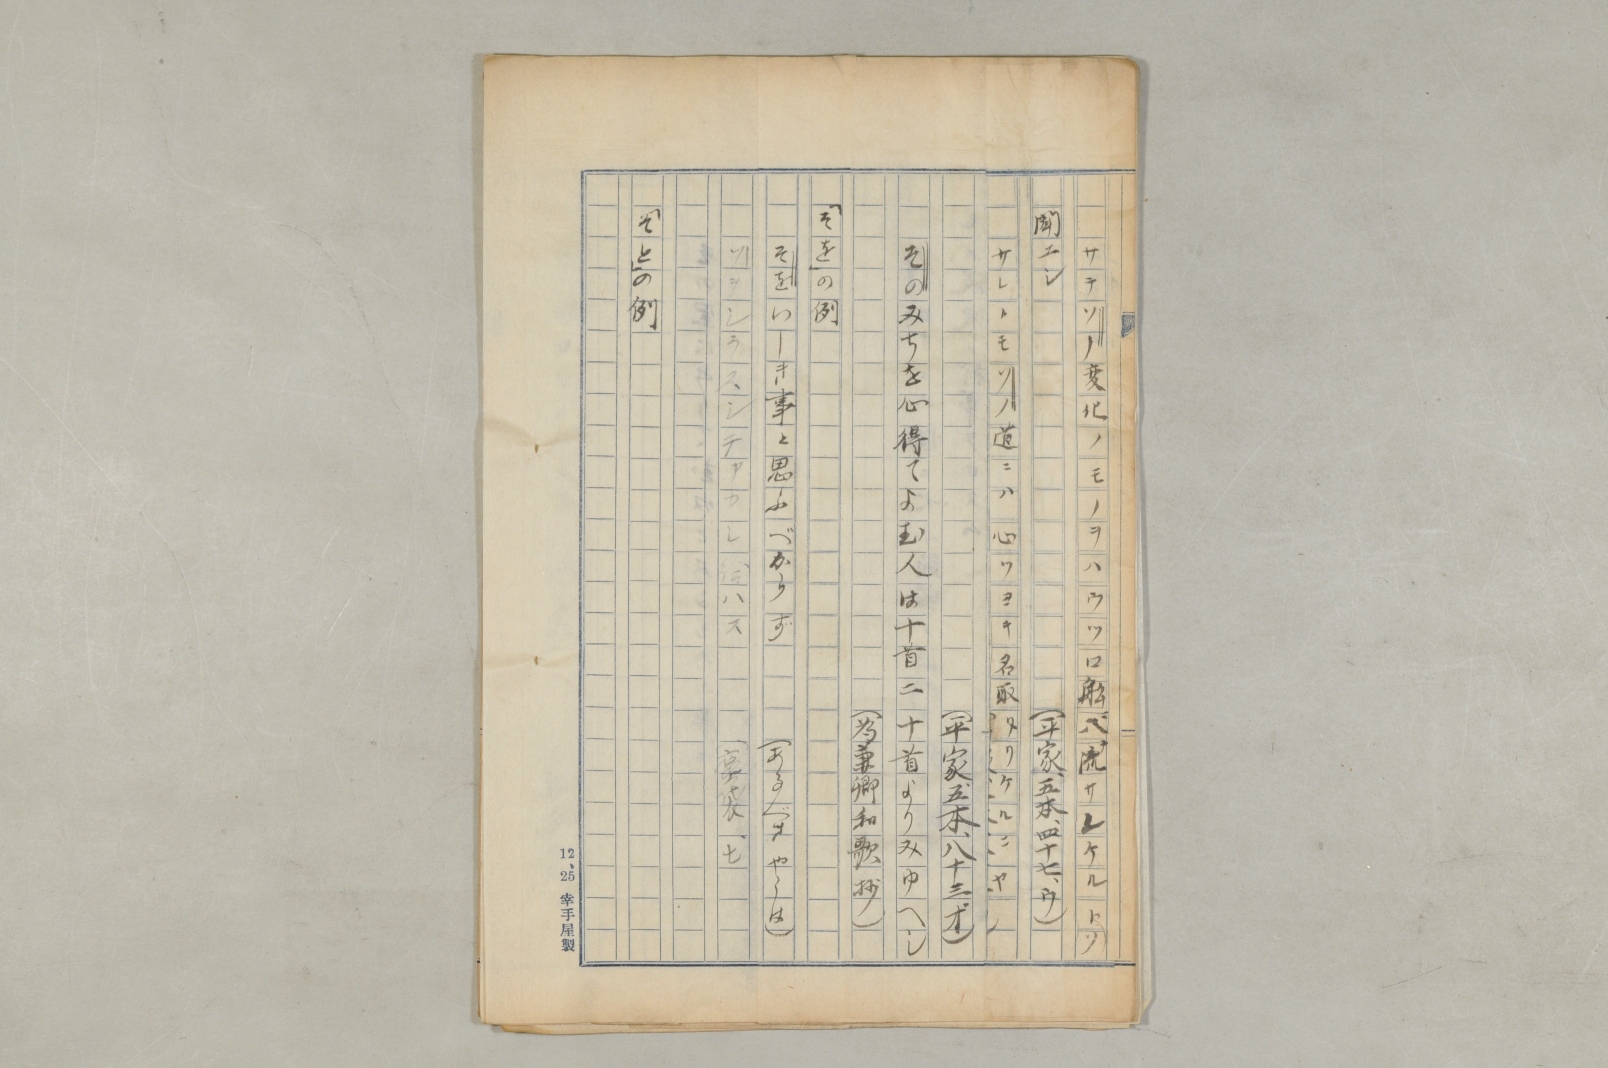 サテソノ変化ノモノヲハウツロ船ヘ流サレケルトソ
聞エシ
(平家、五本、四十七、ウ)
サレトモソノ道ニハ心ツヨキ名取タリケルニヤ
(平家、五本、八十三、オ)
そのみちを心得てよむ人は十首二十首よりみゆへし
(為兼卿和歌抄)
「そを」の例
そをいしき事と思ふべからず
(あるべきやうは)
ソヲシラスシテ
ハス
七
「そと」の例
12、25 幸手屋製